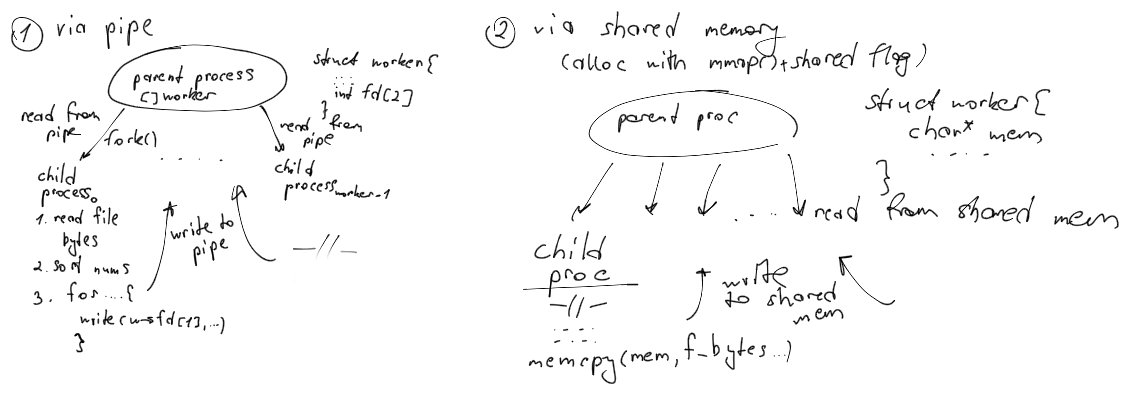 1 via pipe
parent process
[]worker
struct worker{
...
int fd[2]
}
read from
pipe
fork()
read from
pipe
. . . . .
child
process0
child
processworker-1
1. read file
bytes
2. sort nums
3. for....{
write(w→fd[1],...)
}
write to
pipe
—//—
2 via shared memory
(alloc with mmap()+shared flag)
parent proc
struct worker{
char* mem
. . . .
}
. . . .
read from shared mem
child
proc
—//—
. . . .
. . . .
memcpy(mem, f_bytes...)
write
to shared
mem